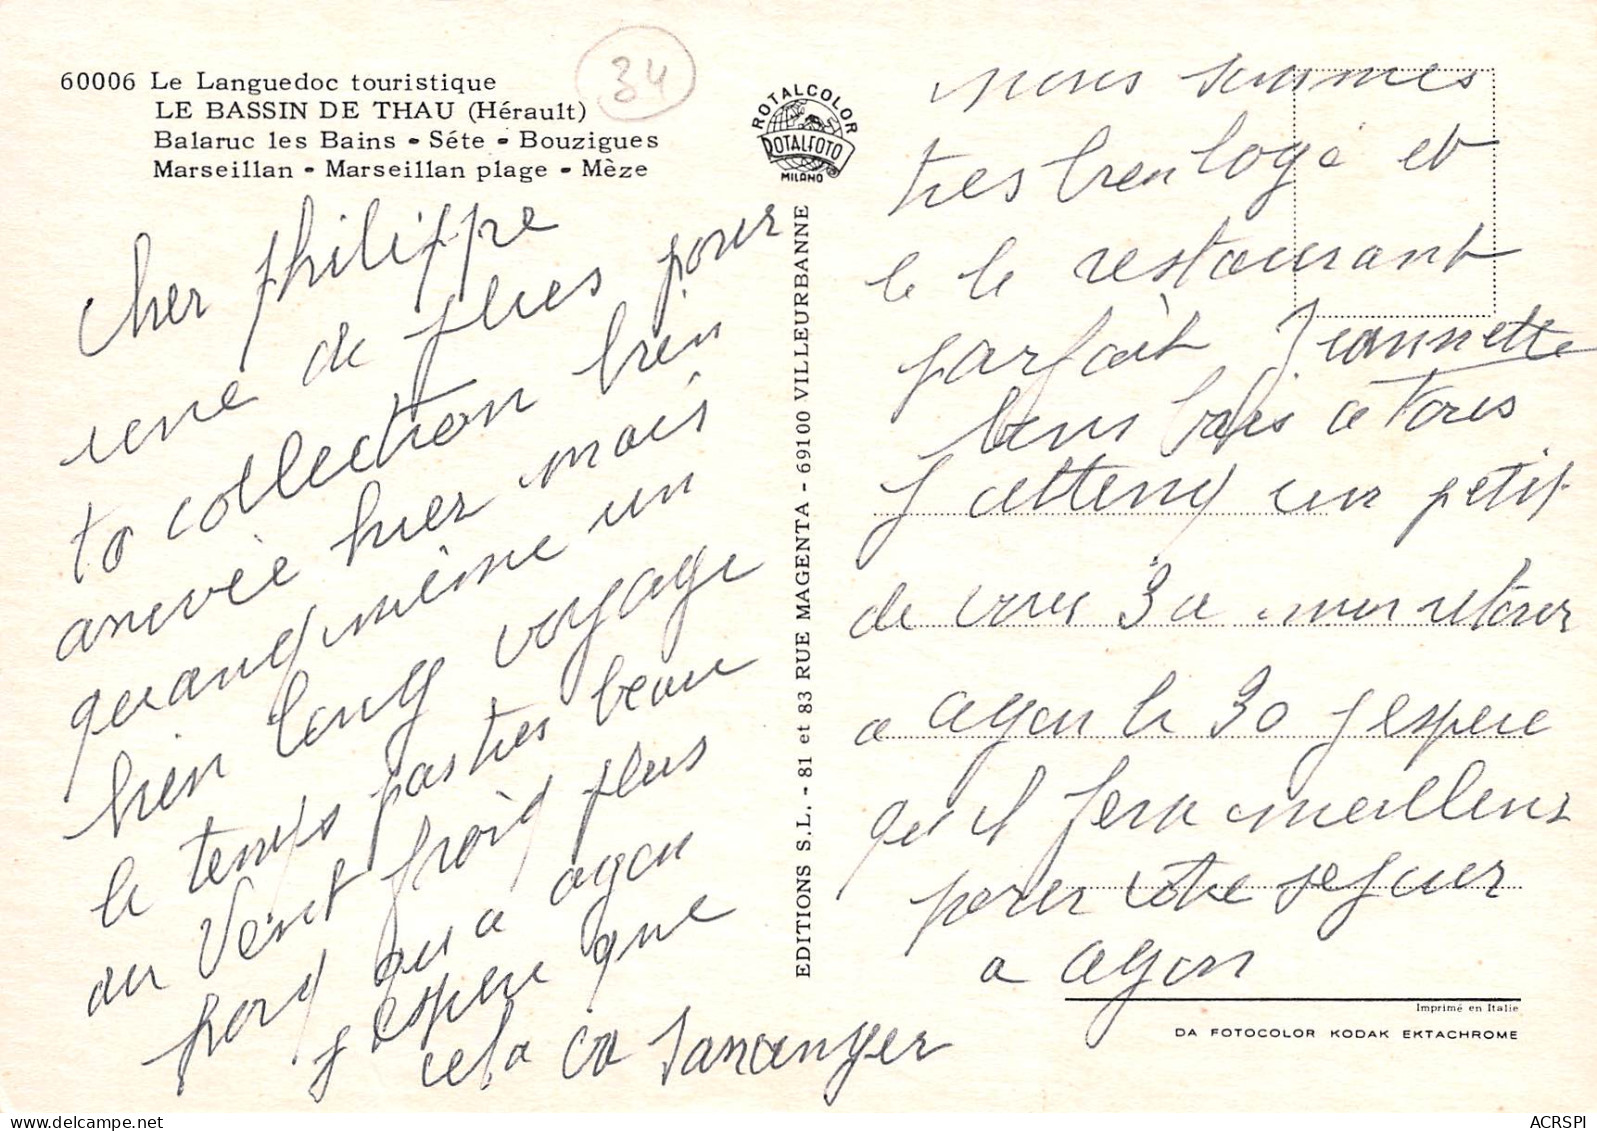 34
60006 Le Languedoc touristique
LE BASSIN DE THAU (Hérault)
Balaruc les Bains - Séte - Bouzigues
Marseillan - Marseillan plage - Mèze
ROTALCOLOR
ROTALFOTO
MILANO
EDITIONS S.L. - 81 et 83 RUE MAGENTA - 69100 VILLEURBANNE
Cher Philippe
une de plus pour
ta collection bien
arrivée hier mais
quand même un
bien long voyage
le temps pas tres beau
du Vent froid plus
froid qu a agon
j espere que
cela va s arranger
nous sommes
tres bien logé et
le restaurant
parfait Jeannette
bons baisers a tous
J attend un petit
de vous 3 a mon retour
a agon le 30 j espere
qu il fera meilleur
pour votre sejour
a agon
Imprimé en Italie
DA FOTOCOLOR KODAK EKTACHROME
ACRSPI